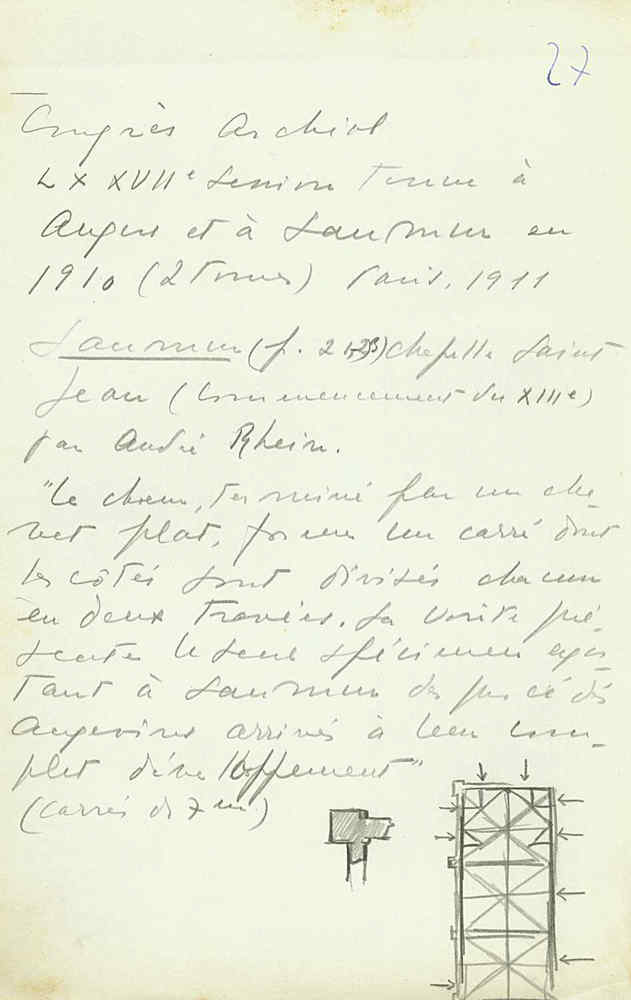 27
Congrès Archéol
LXXXVIIe Session Tenue à
Angers et à Saumur en
1910 (2 Tomes) Paris, 1911
Saumur (p. 23) chapelle Saint
Jean (Commencement du XIIIe)
par André Rhein.
"Le choeur, terminé par un che-
vet plat, forme un carré dont
les côtés sont divisés chacun
en deux travées. Sa voûte pré-
sente le seul spécimen exis-
tant à Saumur des procédés
Angevins arrivés à leur com-
plet développement"
(carrés de 7m)